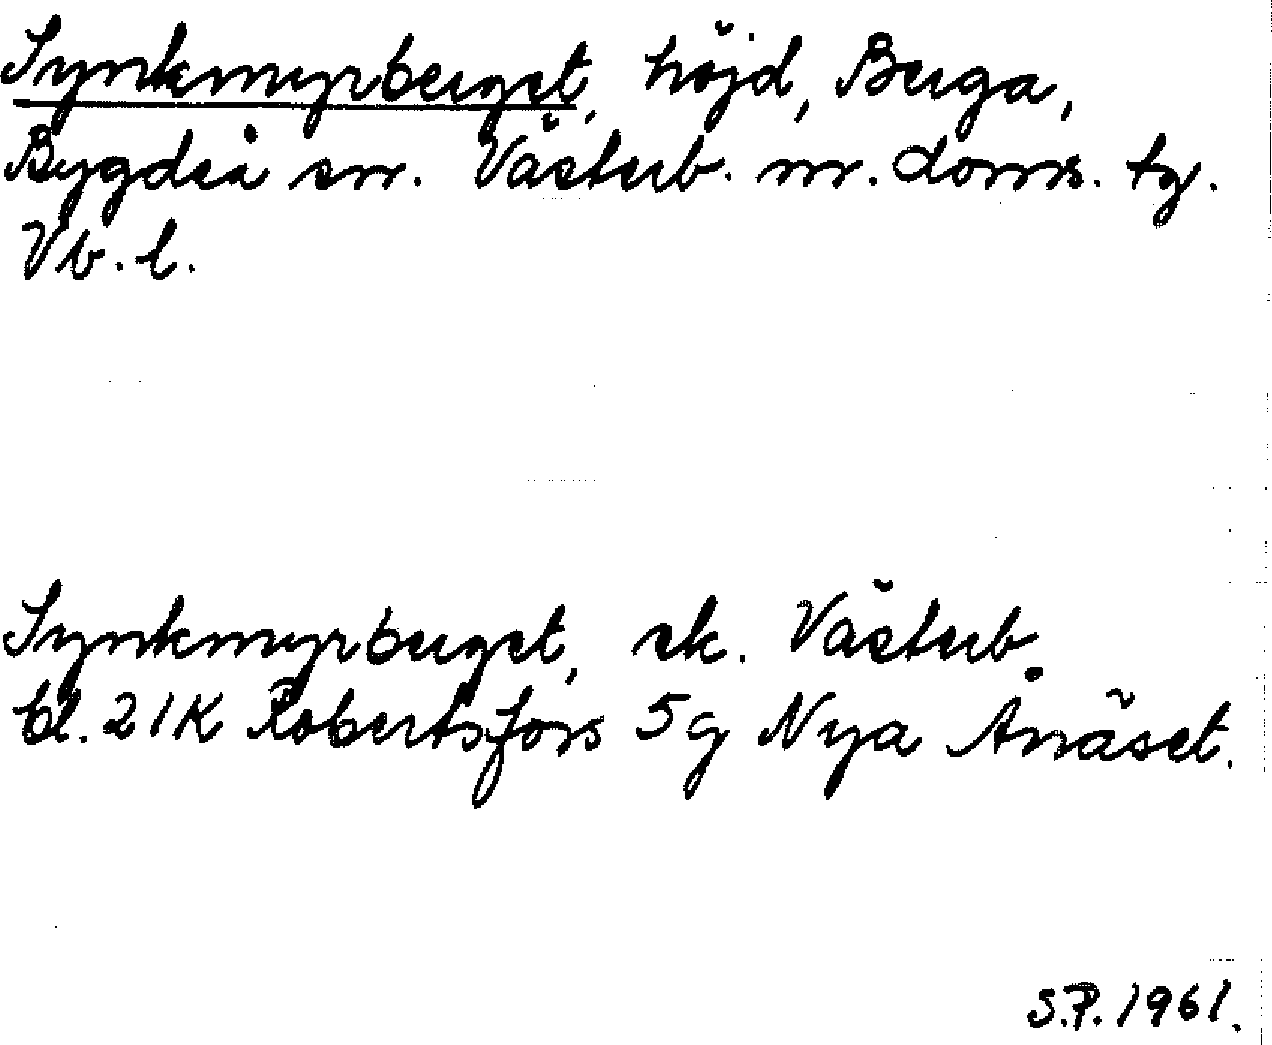 Synkmyrberget, höjd, Berga,
Bygdeå sn. Västerb. n. doms. tg.
Vb. l.
Synkmyrberget, ek. Västerb.
bl. 21K Robertsfors 5g Nya Ånäset.
S.P. 1961.